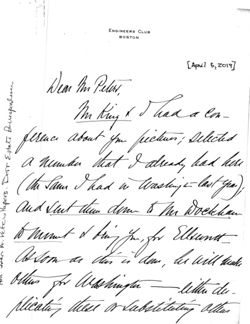 ENGINEERS CLUB
BOSTON
Dear Mr Peters,
Mr King & I had a con-
ference about your pictures; selected
a number that I already had here
(the same I had in Washington last year),
and sent them down to Mr Dockham
to mount & King for Ellsworth
As soon as this is done, he will make
others for Washington — either du-
plicating these or substituting others